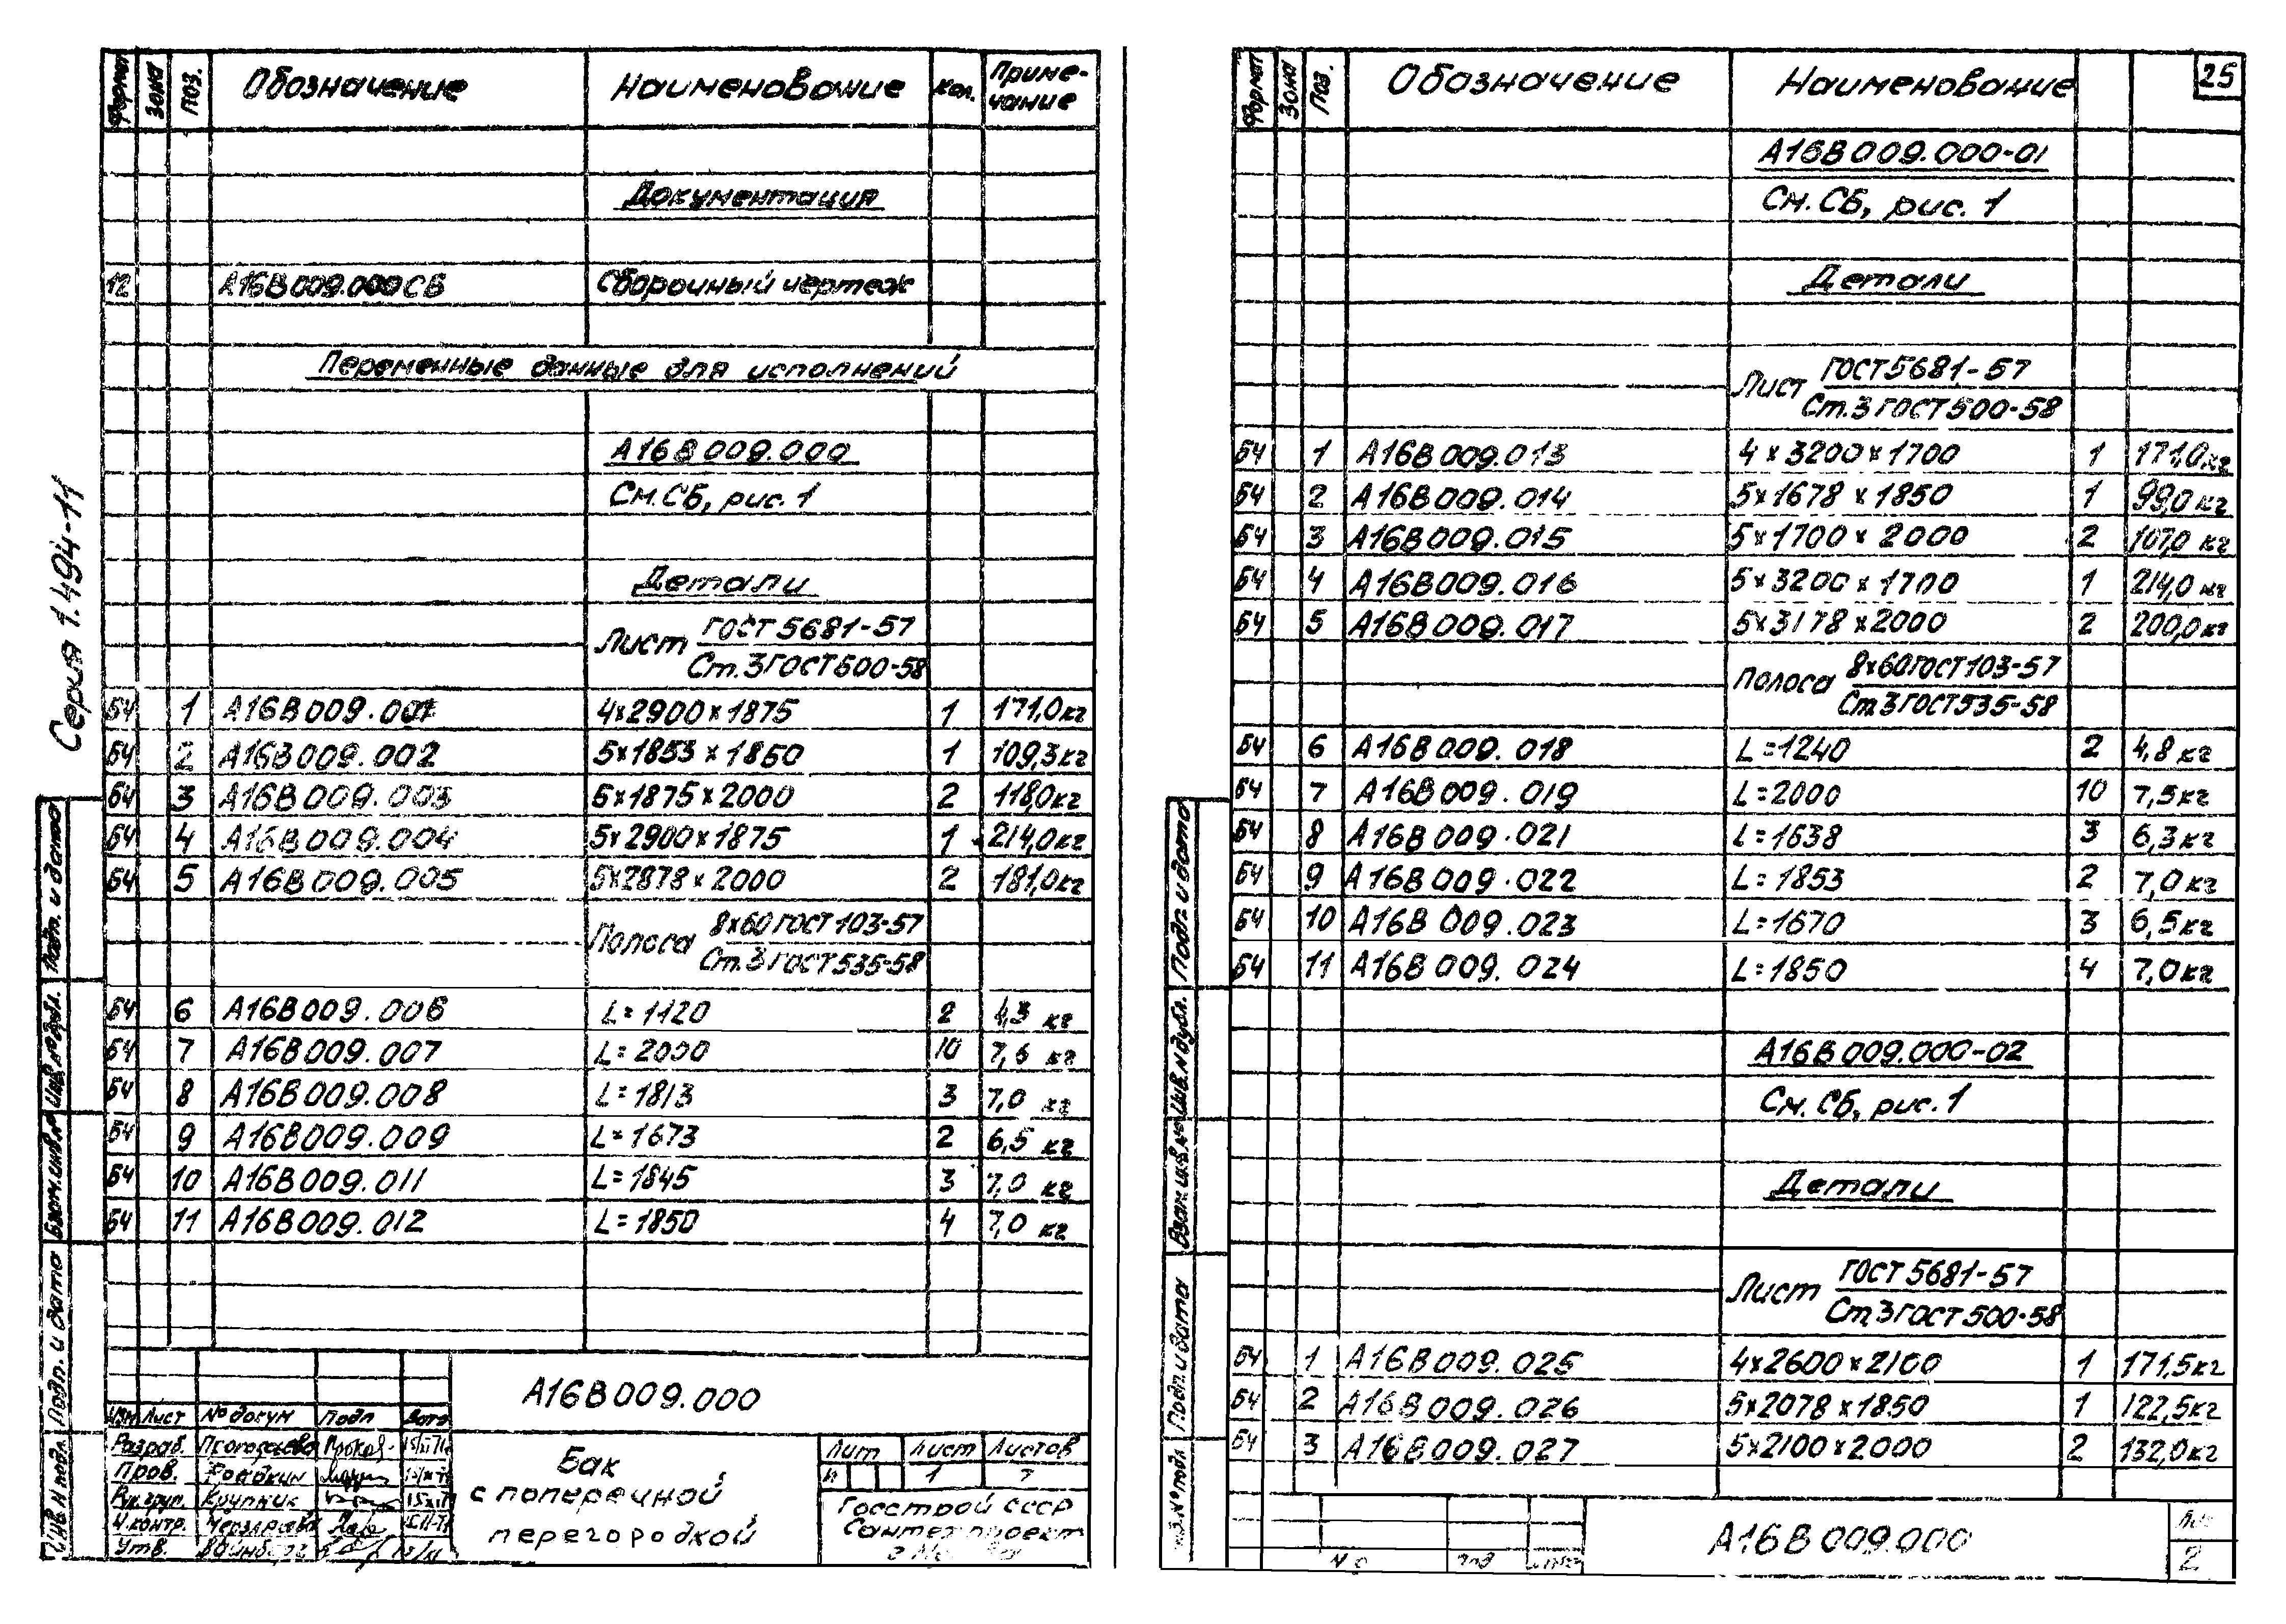 Серия 1.494-11
Формат Зона Поз. Обозначение Наименование Кол. Приме-
чание
Документация
12 А16В009.000СБ Сборочный чертеж
Переменные данные для исполнений
А16В009.000
См. СБ, рис. 1
Детали
Лист ГОСТ 5681-57
Ст.3 ГОСТ 500-58
БЧ 1 А16В009.001 4х2900х1875 1 171,0кг
БЧ 2 А16В009.002 5х1853х1850 1 109,3кг
БЧ 3 А16В009.003 5х1875х2000 2 118,0кг
БЧ 4 А16В009.004 5х2900х1875 1 214,0кг
БЧ 5 А16В009.005 5х2878х2000 2 181,0кг
Полоса 8х60 ГОСТ 103-57
Ст.3 ГОСТ 535-58
БЧ 6 А16В009.006 L=1120 2 4,3 кг
БЧ 7 А16В009.007 L=2000 10 7,5 кг
БЧ 8 А16В009.008 L=1813 3 7,0 кг
БЧ 9 А16В009.009 L=1673 2 6,5 кг
БЧ 10 А16В009.011 L=1845 3 7,0 кг
БЧ 11 А16В009.012 L=1850 4 7,0 кг
Подп. и дата
Инв.№дубл.
Взам.инв.№
Подп. и дата
Инв.№подл.
А16В009.000
Изм Лист №докум Подп Дата
Разраб.
Пров.
Рук.груп. Крупник
Н.контр.
Утв. Вайнберг
Бак
с поперечной
перегородкой
Лит Лист Листов
И 1 7
Госстрой СССР
Сантехпроект
25
Формат Зона Поз. Обозначение Наименование
А16В009.000-01
См. СБ, рис. 1
Детали
Лист ГОСТ 5681-57
Ст.3 ГОСТ 500-58
БЧ 1 А16В009.013 4х3200х1700 1 171,0кг
БЧ 2 А16В009.014 5х1678х1850 1 99,0кг
БЧ 3 А16В009.015 5х1700х2000 2 107,0 кг
БЧ 4 А16В009.016 5х3200х1700 1 214,0 кг
БЧ 5 А16В009.017 5х3178х2000 2 200,0кг
Полоса 8х60 ГОСТ 103-57
Ст.3 ГОСТ 535-58
БЧ 6 А16В009.018 L=1240 2 4,8 кг
БЧ 7 А16В009.019 L=2000 10 7,5кг
БЧ 8 А16В009.021 L=1638 3 6,3кг
БЧ 9 А16В009.022 L=1853 2 7,0кг
БЧ 10 А16В009.023 L=1670 3 6,5кг
БЧ 11 А16В009.024 L=1850 4 7,0кг
А16В009.000-02
См. СБ, рис. 1
Детали
Лист ГОСТ 5681-57
Ст.3 ГОСТ 500-58
БЧ 1 А16В009.025 4х2600х2100 1 171,5кг
БЧ 2 А16В009.026 5х2078х1850 1 122,5кг
БЧ 3 А16В009.027 5х2100х2000 2 132,0кг
Подп. и дата
Инв.№дубл.
Взам.инв.№
Подп. и дата
№подл
А16В009.000
2